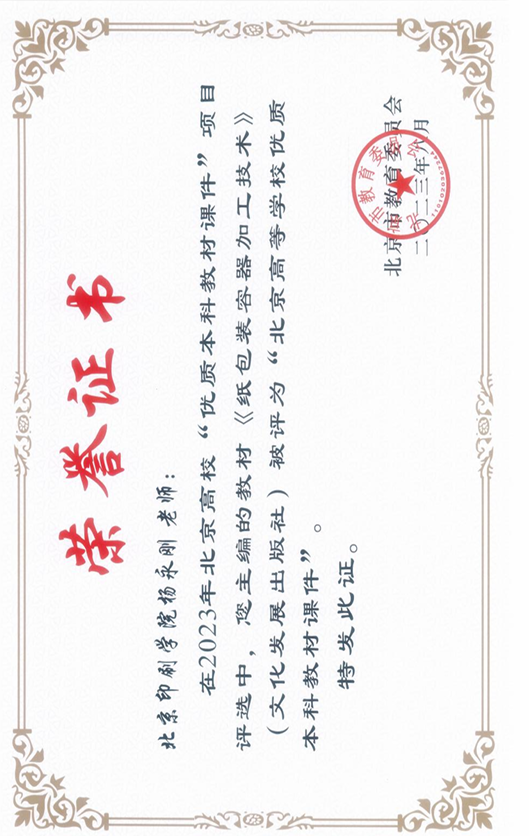 荣誉证书
北京印刷学院杨永刚 老师：
在2023年北京高校“优质本科教材课件”项目
评选中，您主编的教材《纸包装容器加工技术》
（文化发展出版社）被评为“北京高等学校优质
本科教材课件”。
特发此证。
北京市教育委员会
二〇二三年八月